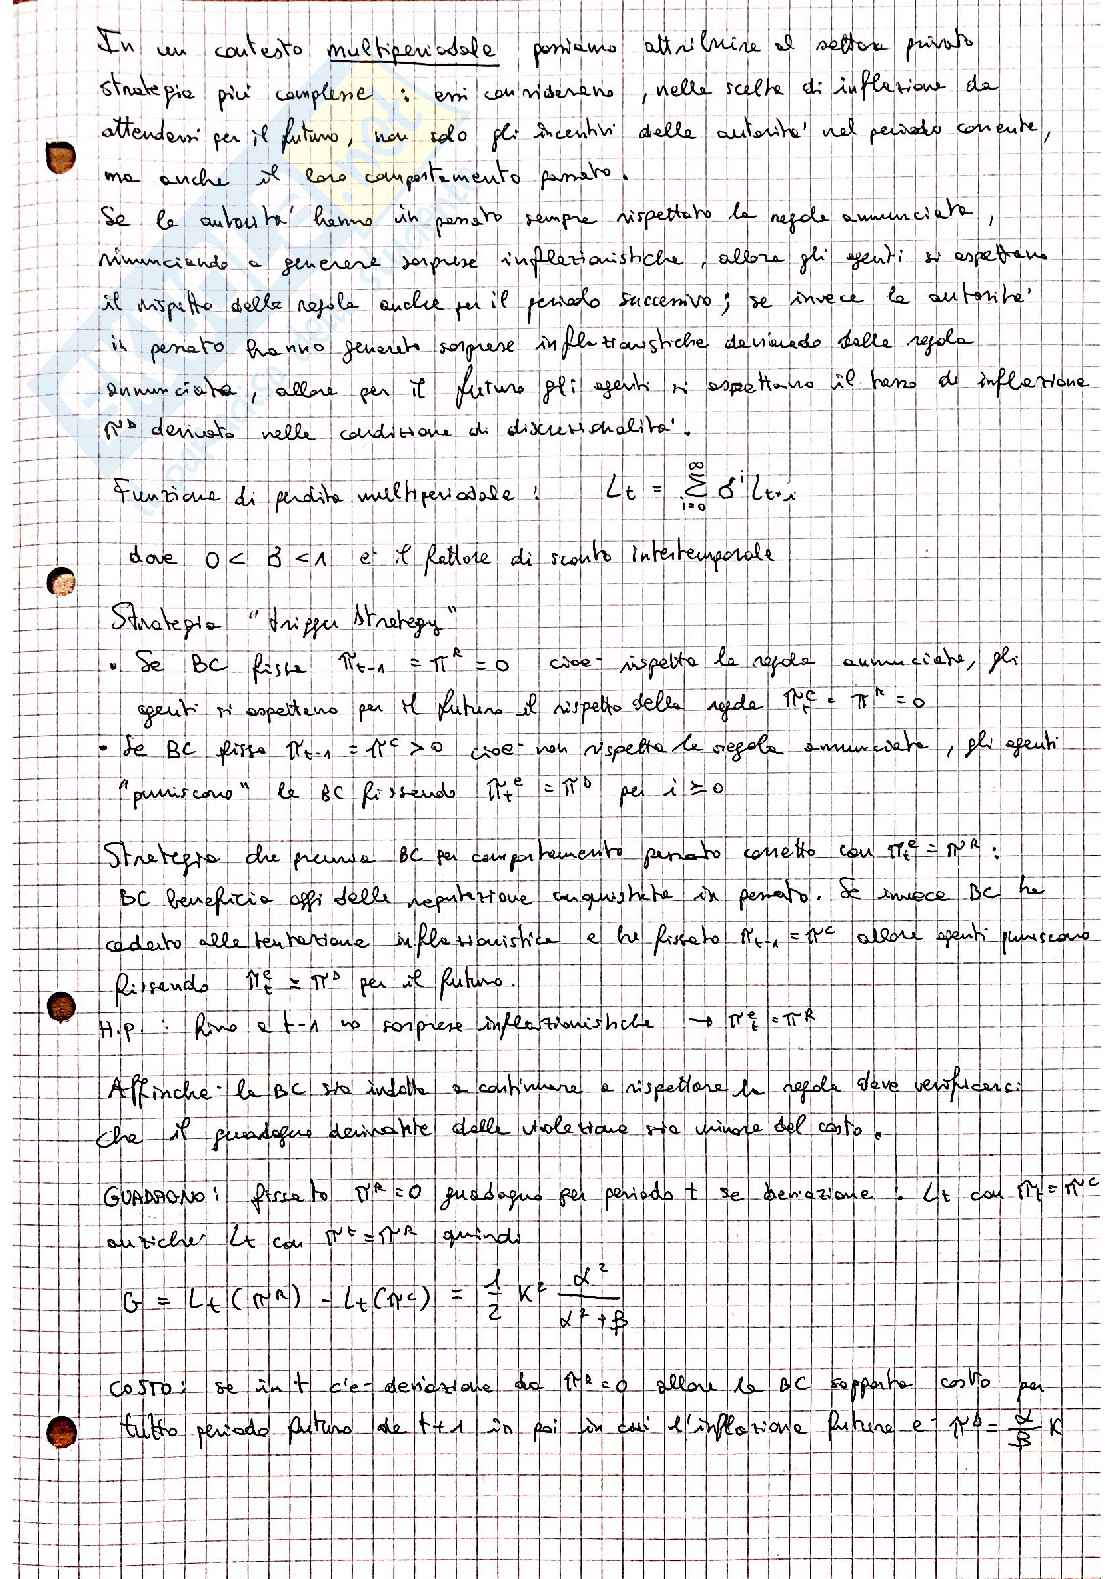 In un contesto multiperiodale possiamo attribuire al settore privato
strategie più complesse : essi considerano , nella scelta di inflazione da
attendersi per il futuro, non solo gli incentivi delle autorità nel periodo corrente,
ma anche il loro comportamento passato.
Se le autorità hanno in passato sempre rispettato la regola annunciata,
rinunciando a generare sorprese inflazionistiche, allora gli agenti si aspettano
il rispetto della regola anche per il periodo successivo; se invece le autorità
in passato hanno generato sorprese inflazionistiche deviando dalla regola
annunciata, allora per il futuro gli agenti si aspettano il tasso di inflazione
π^D derivato nella condizione di discrezionalità.
Funzione di perdita multiperiodale : L_t = Σ_{i=0}^{∞} δ^i L_{t+i}
dove 0 < δ < 1 e' il fattore di sconto intertemporale
Strategia "trigger strategy"
• Se BC fissa π_{t-1} = π^R = 0 cioe- rispetta la regola annunciata, gli
agenti si aspettano per il futuro il rispetto della regola π_t^e = π^R = 0
• Se BC fissa π_{t-1} = π^C > 0 cioe- non rispetta la regola annunciata, gli agenti
"puniscono" la BC fissando π_t^e = π^D per i ≥ 0
Strategia che premia BC per comportamento passato corretto con π_t^e = π^R :
BC beneficia oggi della reputazione acquistata in passato. Se invece BC ha
ceduto alla tentazione inflazionistica e ha fissato π_{t-1} = π^C allora agenti puniscono
fissando π_t^e = π^D per il futuro.
H.p. : fino a t-1 no sorprese inflazionistiche → π_t^e = π^R
Affinche- la BC sia indotta a continuare a rispettare la regola deve verificarsi
che il guadagno derivante dalla violazione sia minore del costo.
GUADAGNO: fissato π^R = 0 guadagno per periodo t se deviazione : L_t con π_t = π^C
anziche- L_t con π^t = π^R quindi
G = L_t (π^R) - L_t (π^C) = 1/2 K² α²/(α² + β)
COSTO: se in t c'e- deviazione da π^R = 0 allora la BC sopporta costo per
tutto periodo futuro da t+1 in poi in cui l'inflazione futura e- π^D = α/β K